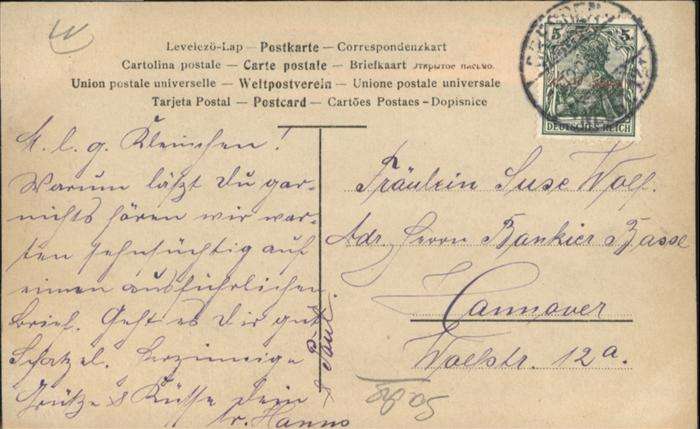 Levelezö-Lap – Postkarte – Correspondenzkart
Cartolina postale – Carte postale – Briefkaart Открытое письмо.
Union postale universelle – Weltpostverein – Unione postale universale
Tarjeta Postal – Postcard – Cartões Postaes - Dopisnice
5 5
DEUTSCHES REICH
DRESDEN
M. l. g. Kleinchen!
Warum läßt Du gar-
nichts hören wir war-
ten sehnsüchtig auf
einen ausführlichen
Brief. Geht es Dir gut
Schatzel. Herzinnige
Grütze & Küsse Dein
Hanno
& Paul.
Fräulein Suse Wolf.
Adr. Herrn Bankier Basse
Hannover
12a.
05